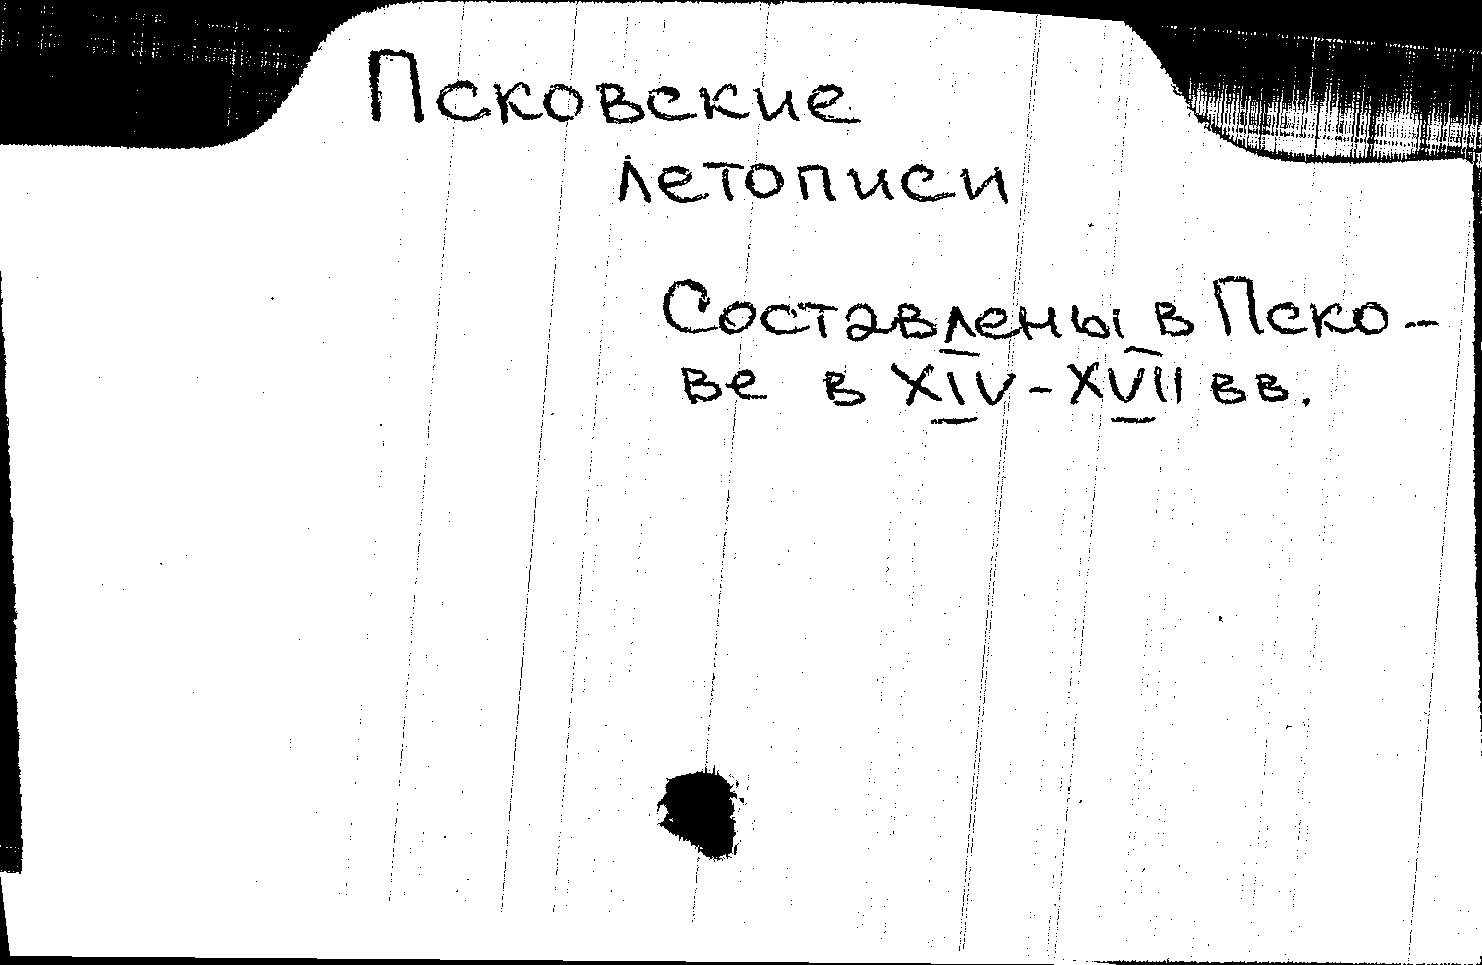 Псковские
летописи
Составлены в Пско-
ве в XIV-XVII вв.